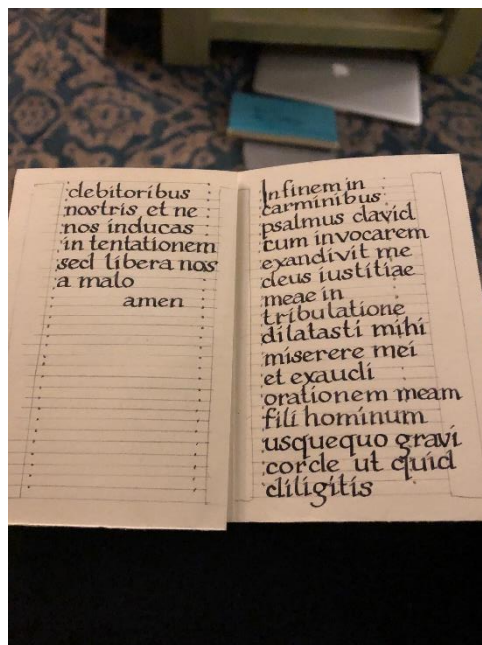 debitoribus
nostris et ne
nos inducas
in tentationem
sed libera nos
a malo
amen
In finem in
carminibus
psalmus david
cum invocarem
exandivit me
deus iustitiae
meae in
tribulatione
dilatasti mihi
miserere mei
et exaudi
orationem meam
fili hominum
usquequo gravi
corde ut quid
diligitis